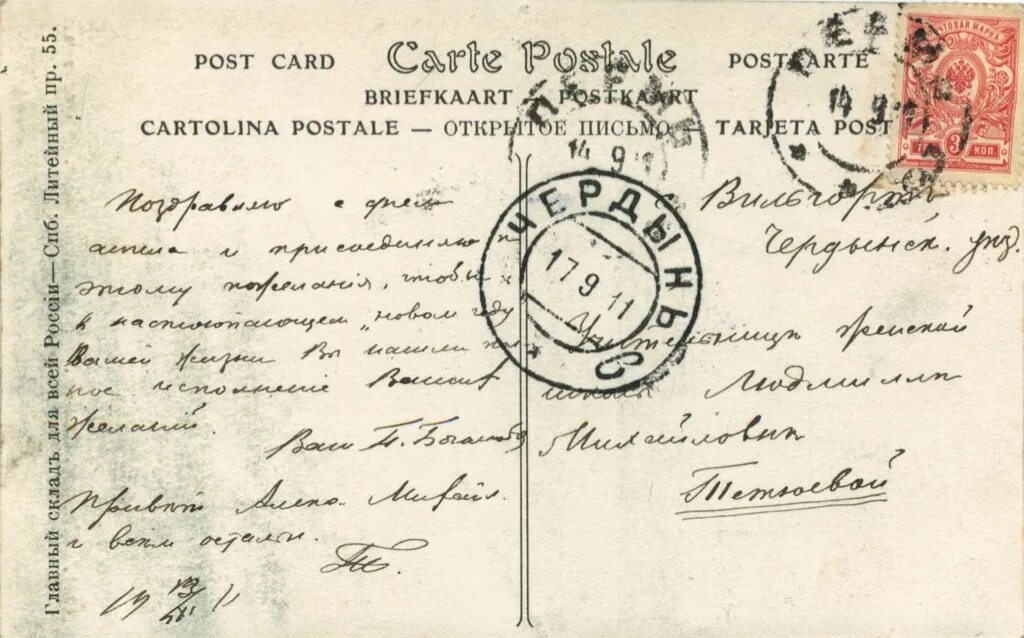 POST CARD Carte Postale POSTKARTE
BRIEFKAART — POSTKAART
CARTOLINA POSTALE — ОТКРЫТОЕ ПИСЬМО — TARJETA POST
Главный складъ для всей Россіи — Спб. Литейный пр. 55.
ПЕРМЬ
14 9 11
ПЕРМЬ
14 9 11
ПОЧТОВАЯ МАРКА
3 КОП
ЧЕРДЫНЬ
17 9 11
Поздравляю с днем
ангела и присоединяю к
этому пожелания, чтобы
в наступающем „новом году
Вашей жизни Вы нашли пол
ное исполнение Ваших
желаний.
Ваш П.
Привет Алекс. Михайл.
и всем остальн.
19 13/IX 11
Вильгортъ
Чердынск. уез.
Учительнице женской
школы Людмилле
Михайловне
Тетюевой